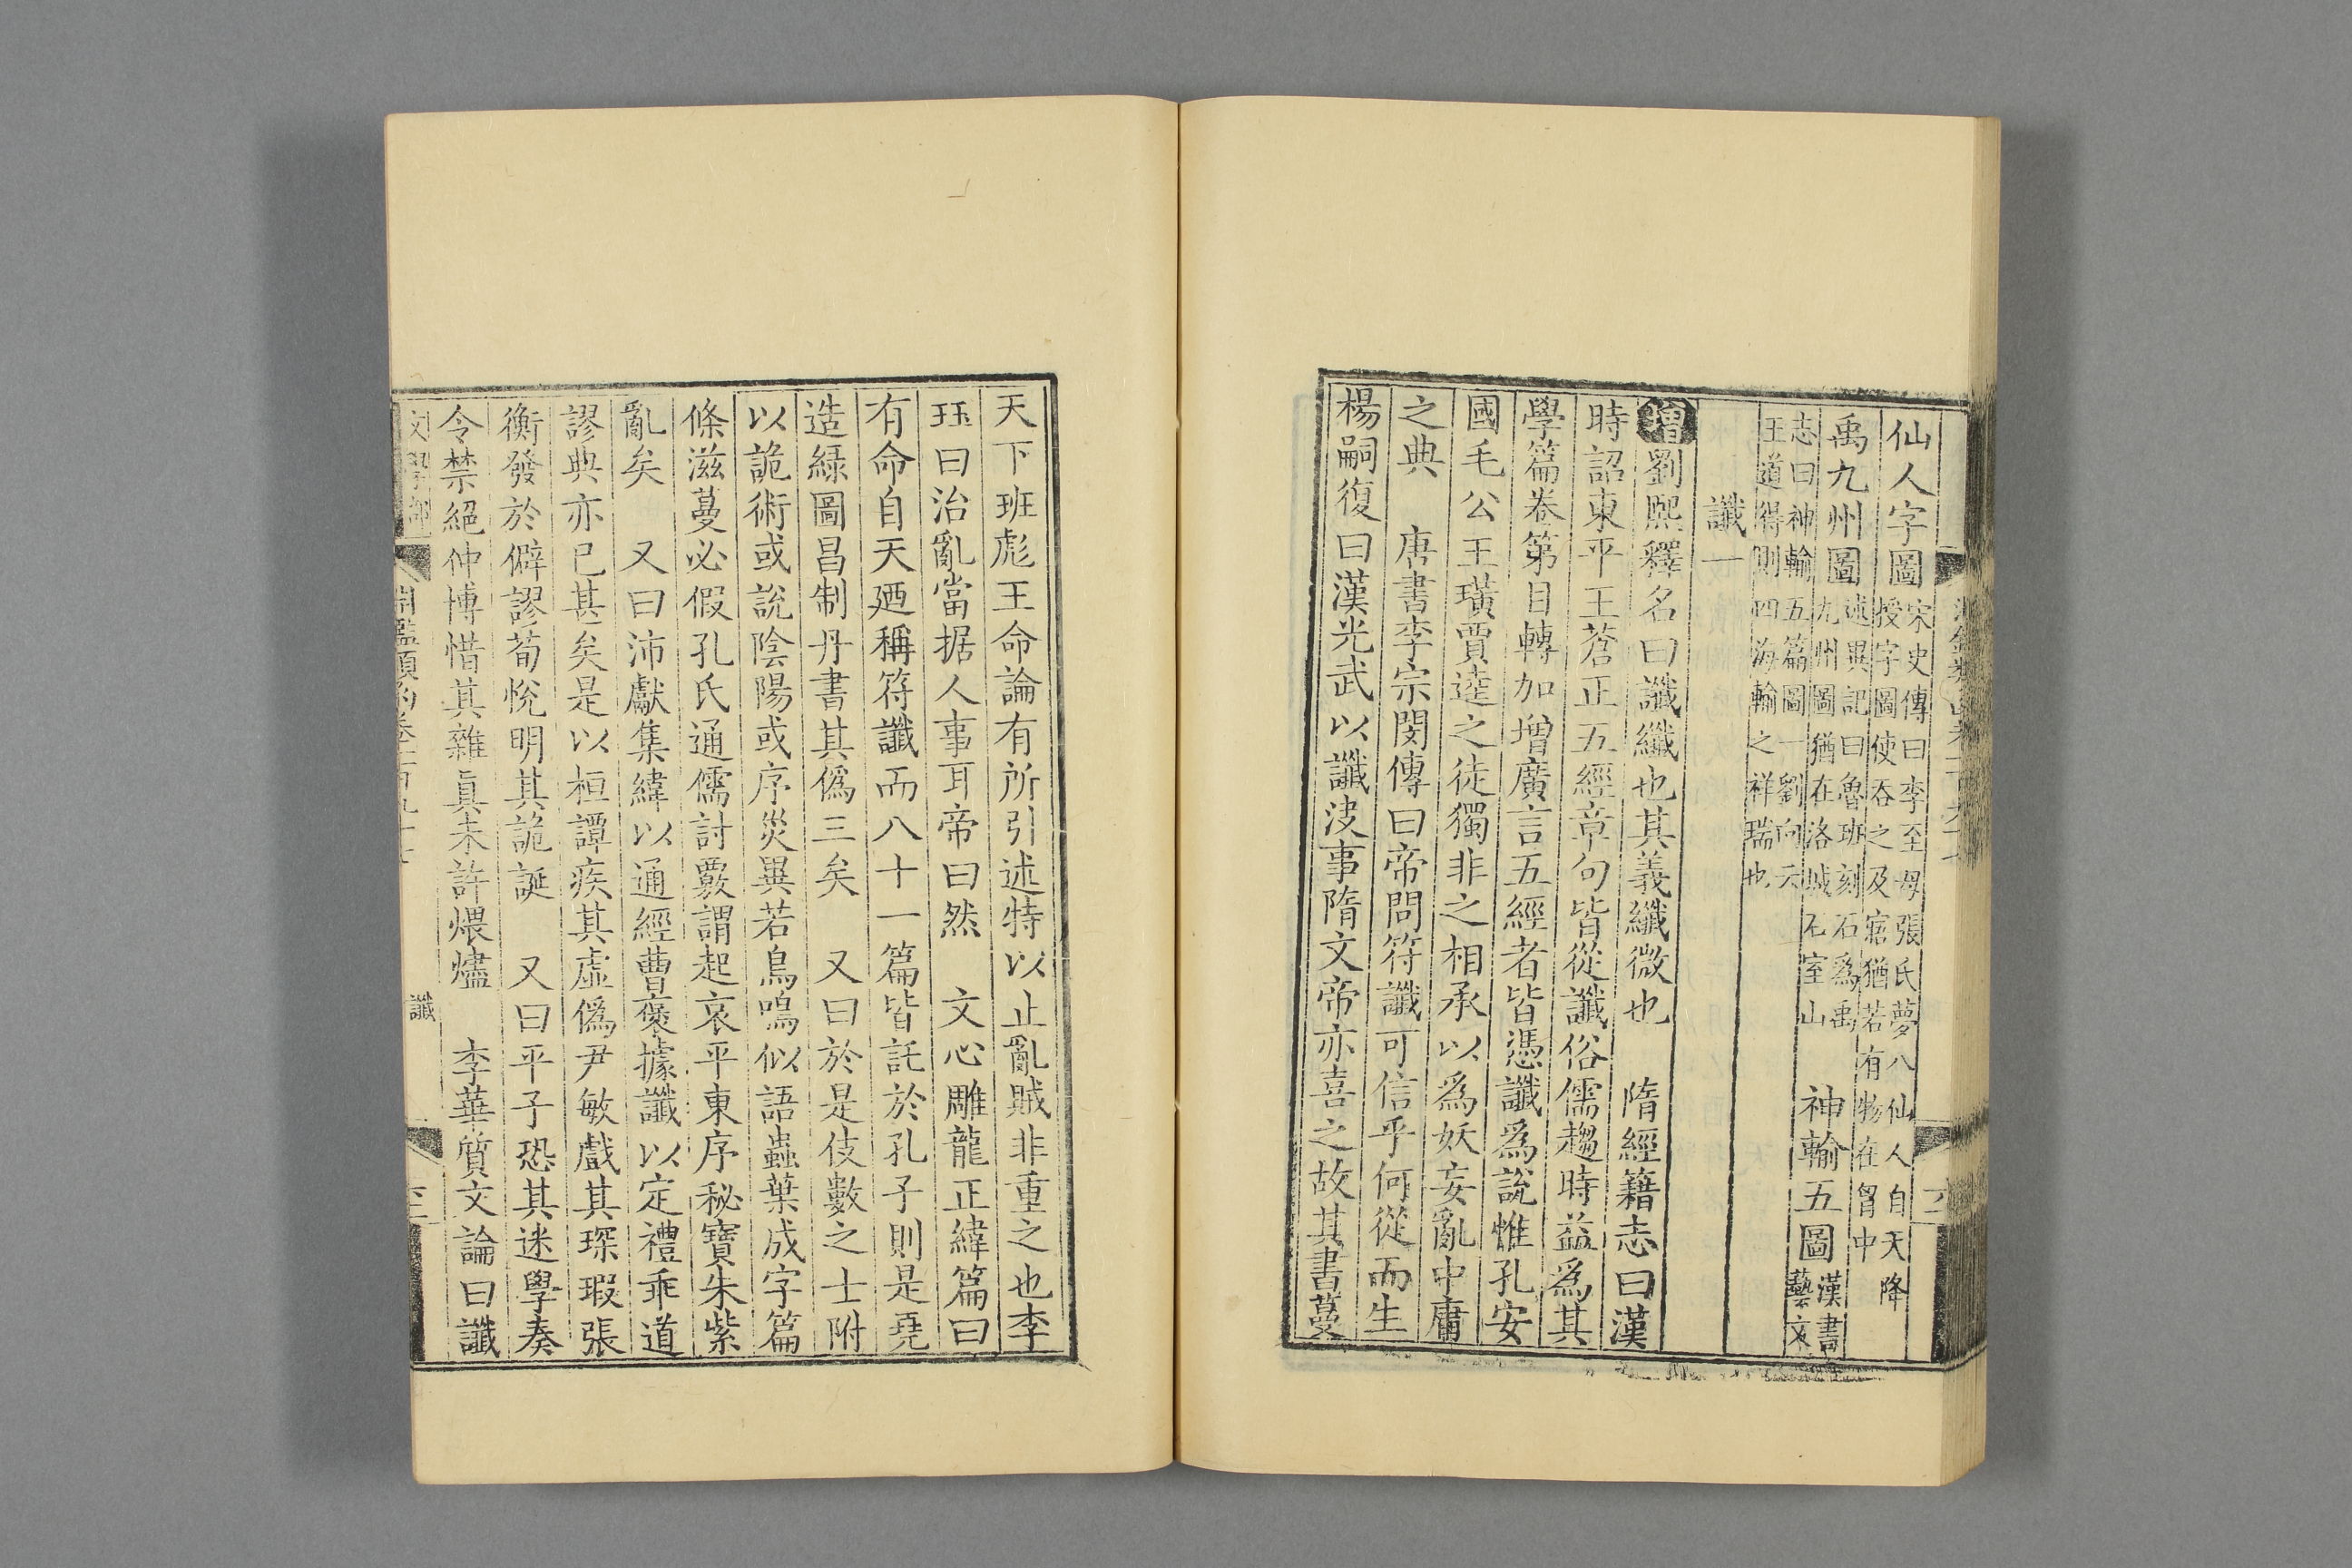 仙人字圖宋史傳曰李至母張氏夢八仙人自天降
授字圖使吞之及寤猶若有物在胷中
禹九州圖述異記曰魯班刻石爲禹
九州圖猶在洛城石室山
神輸五圖漢書
藝文
志曰神輸五篇圖一劉向云
王道得則四海輸之祥瑞也
讖一
增劉熙釋名曰讖纖也其義纖微也　隋經籍志曰漢
時詔東平王蒼正五經章句皆從讖俗儒趨時益爲其
學篇卷第目轉加增廣言五經者皆憑讖爲說惟孔安
國毛公王璜賈逵之徒獨非之相承以爲妖妄亂中庸
之典　唐書李宗閔傳曰帝問符讖可信乎何從而生
楊嗣復曰漢光武以讖決事隋文帝亦喜之故其書蔓
天下班彪王命論有所引述特以止亂賊非重之也李
珏曰治亂當据人事耳帝曰然　文心雕龍正緯篇曰
有命自天廼稱符讖而八十一篇皆託於孔子則是堯
造綠圖昌制丹書其僞三矣　又曰於是伎數之士附
以詭術或說陰陽或序災異若鳥鳴似語蟲葉成字篇
條滋蔓必假孔氏通儒討覈謂起哀平東序秘寶朱紫
亂矣　又曰沛獻集緯以通經曹褒據讖以定禮乖道
謬典亦已甚矣是以桓譚疾其虛僞尹敏戲其琛瑕張
衡發於僻謬荀悅明其詭誕　又曰平子恐其迷學奏
令禁絕仲博惜其雜眞未許煨燼　李華質文論曰讖
讖